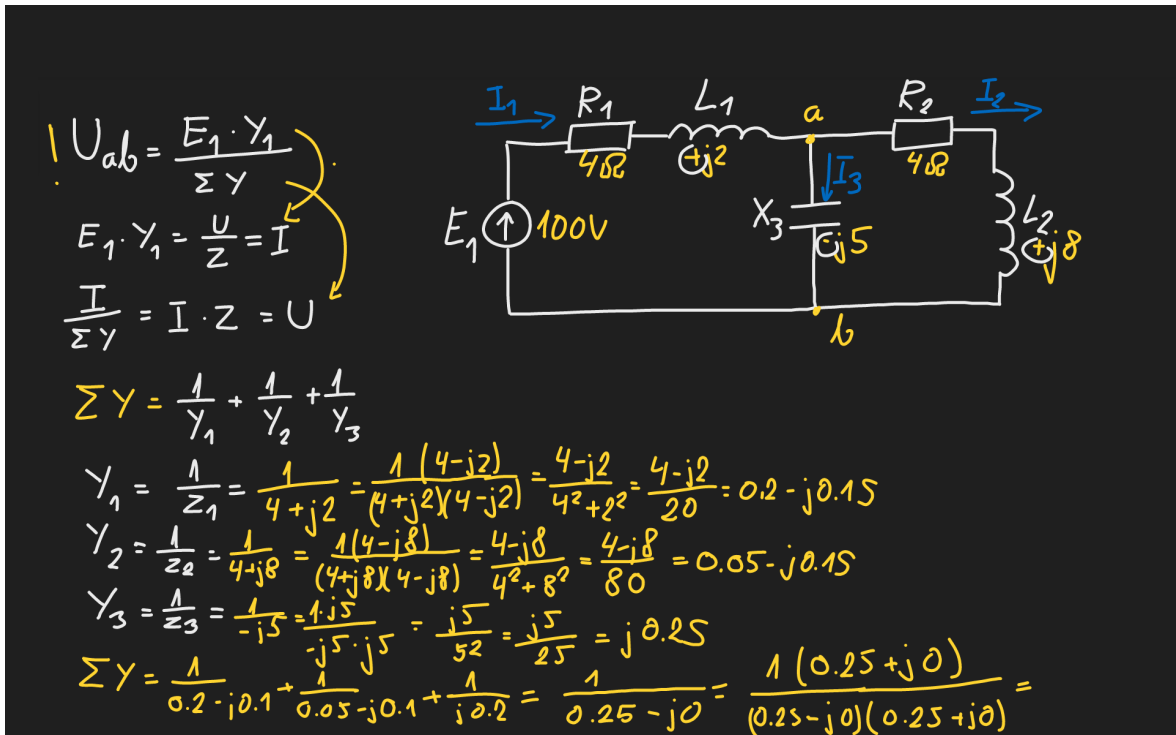 ! U_ab = E₁ · Y₁ / Σ Y
E₁ · Y₁ = U / Z = I
I / Σ Y = I · Z = U
I₁
R₁
4Ω
L₁
+j2
a
R₂
4Ω
I₂
E₁
100V
X₃
I₃
-j5
L₂
+j8
b
Σ Y = 1 / Y₁ + 1 / Y₂ + 1 / Y₃
Y₁ = 1 / Z₁ = 1 / 4+j2 = 1 (4-j2) / (4+j2)(4-j2) = 4-j2 / 4²+2² = 4-j2 / 20 = 0.2-j0.15
Y₂ = 1 / Z₂ = 1 / 4+j8 = 1(4-j8) / (4+j8)(4-j8) = 4-j8 / 4²+8² = 4-j8 / 80 = 0.05-j0.15
Y₃ = 1 / Z₃ = 1 / -j5 = 1·j5 / -j5·j5 = j5 / 5² = j5 / 25 = j0.25
Σ Y = 1 / 0.2-j0.1 + 1 / 0.05-j0.1 + 1 / j0.2 = 1 / 0.25-j0 = 1 (0.25+j0) / (0.25-j0)(0.25+j0) =